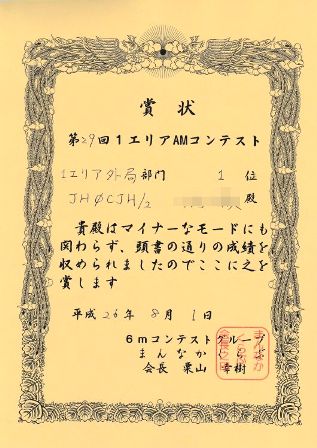 賞状
第29回1エリアAMコンテスト
1エリア外局部門 1位
JHØCJH/2 殿
貴殿はマイナーなモードにも
関わらず、頭書の通りの成績を
収められましたのでここに之を
賞します
平成26年8月1日
6mコンテストグループ
まんなかくらぶ
会長 栗山 幸樹